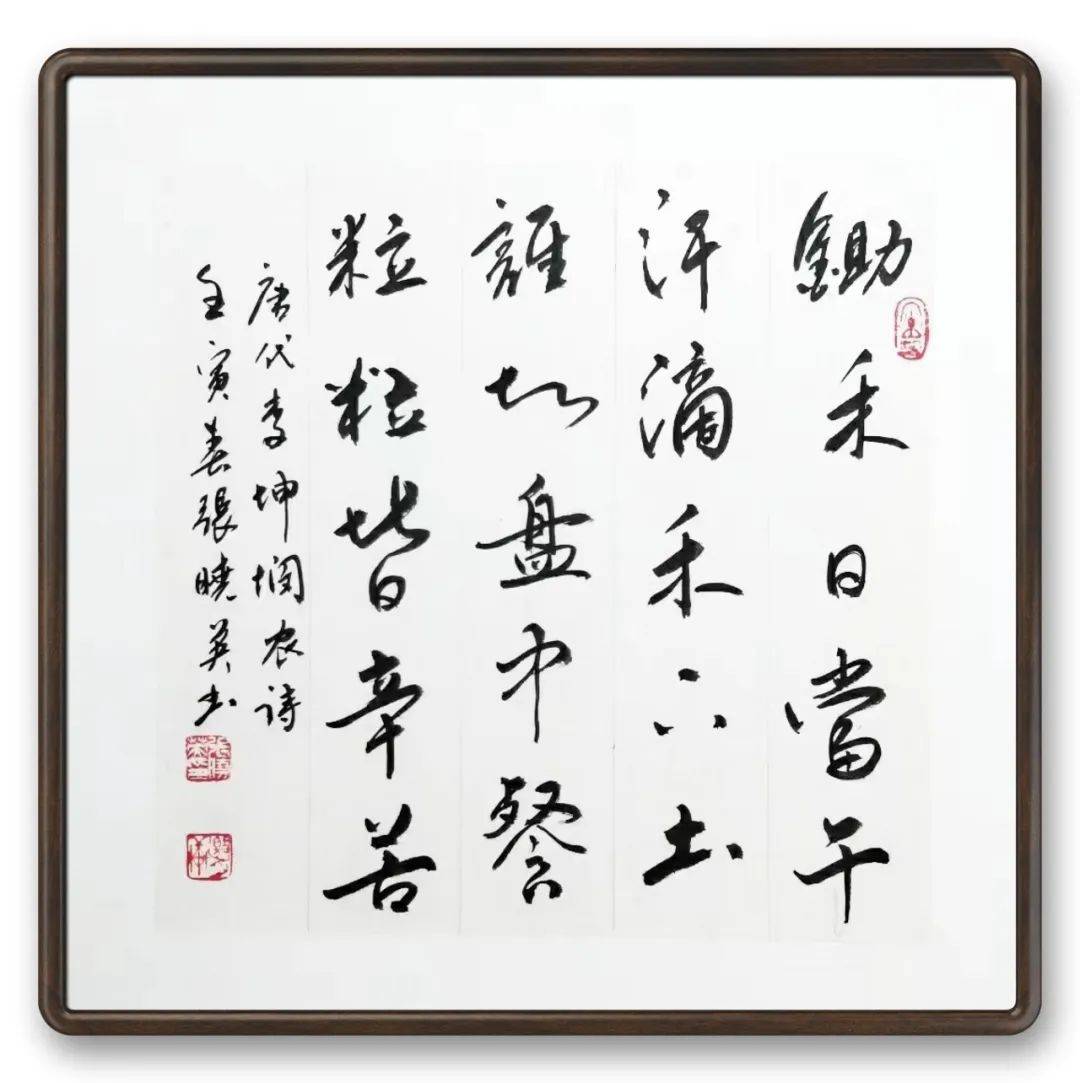 鋤禾日當午
汗滴禾下土
誰知盤中餐
粒粒皆辛苦
唐代李坤悯农诗
壬寅春張曉英书